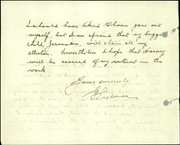 I should have liked to have you out
myself, but I am afraid that my bigger
child, Jerusalem, will claim all my
attention. Nevertheless I hope that
will be assured of my interest in the
work
Yours sincerely